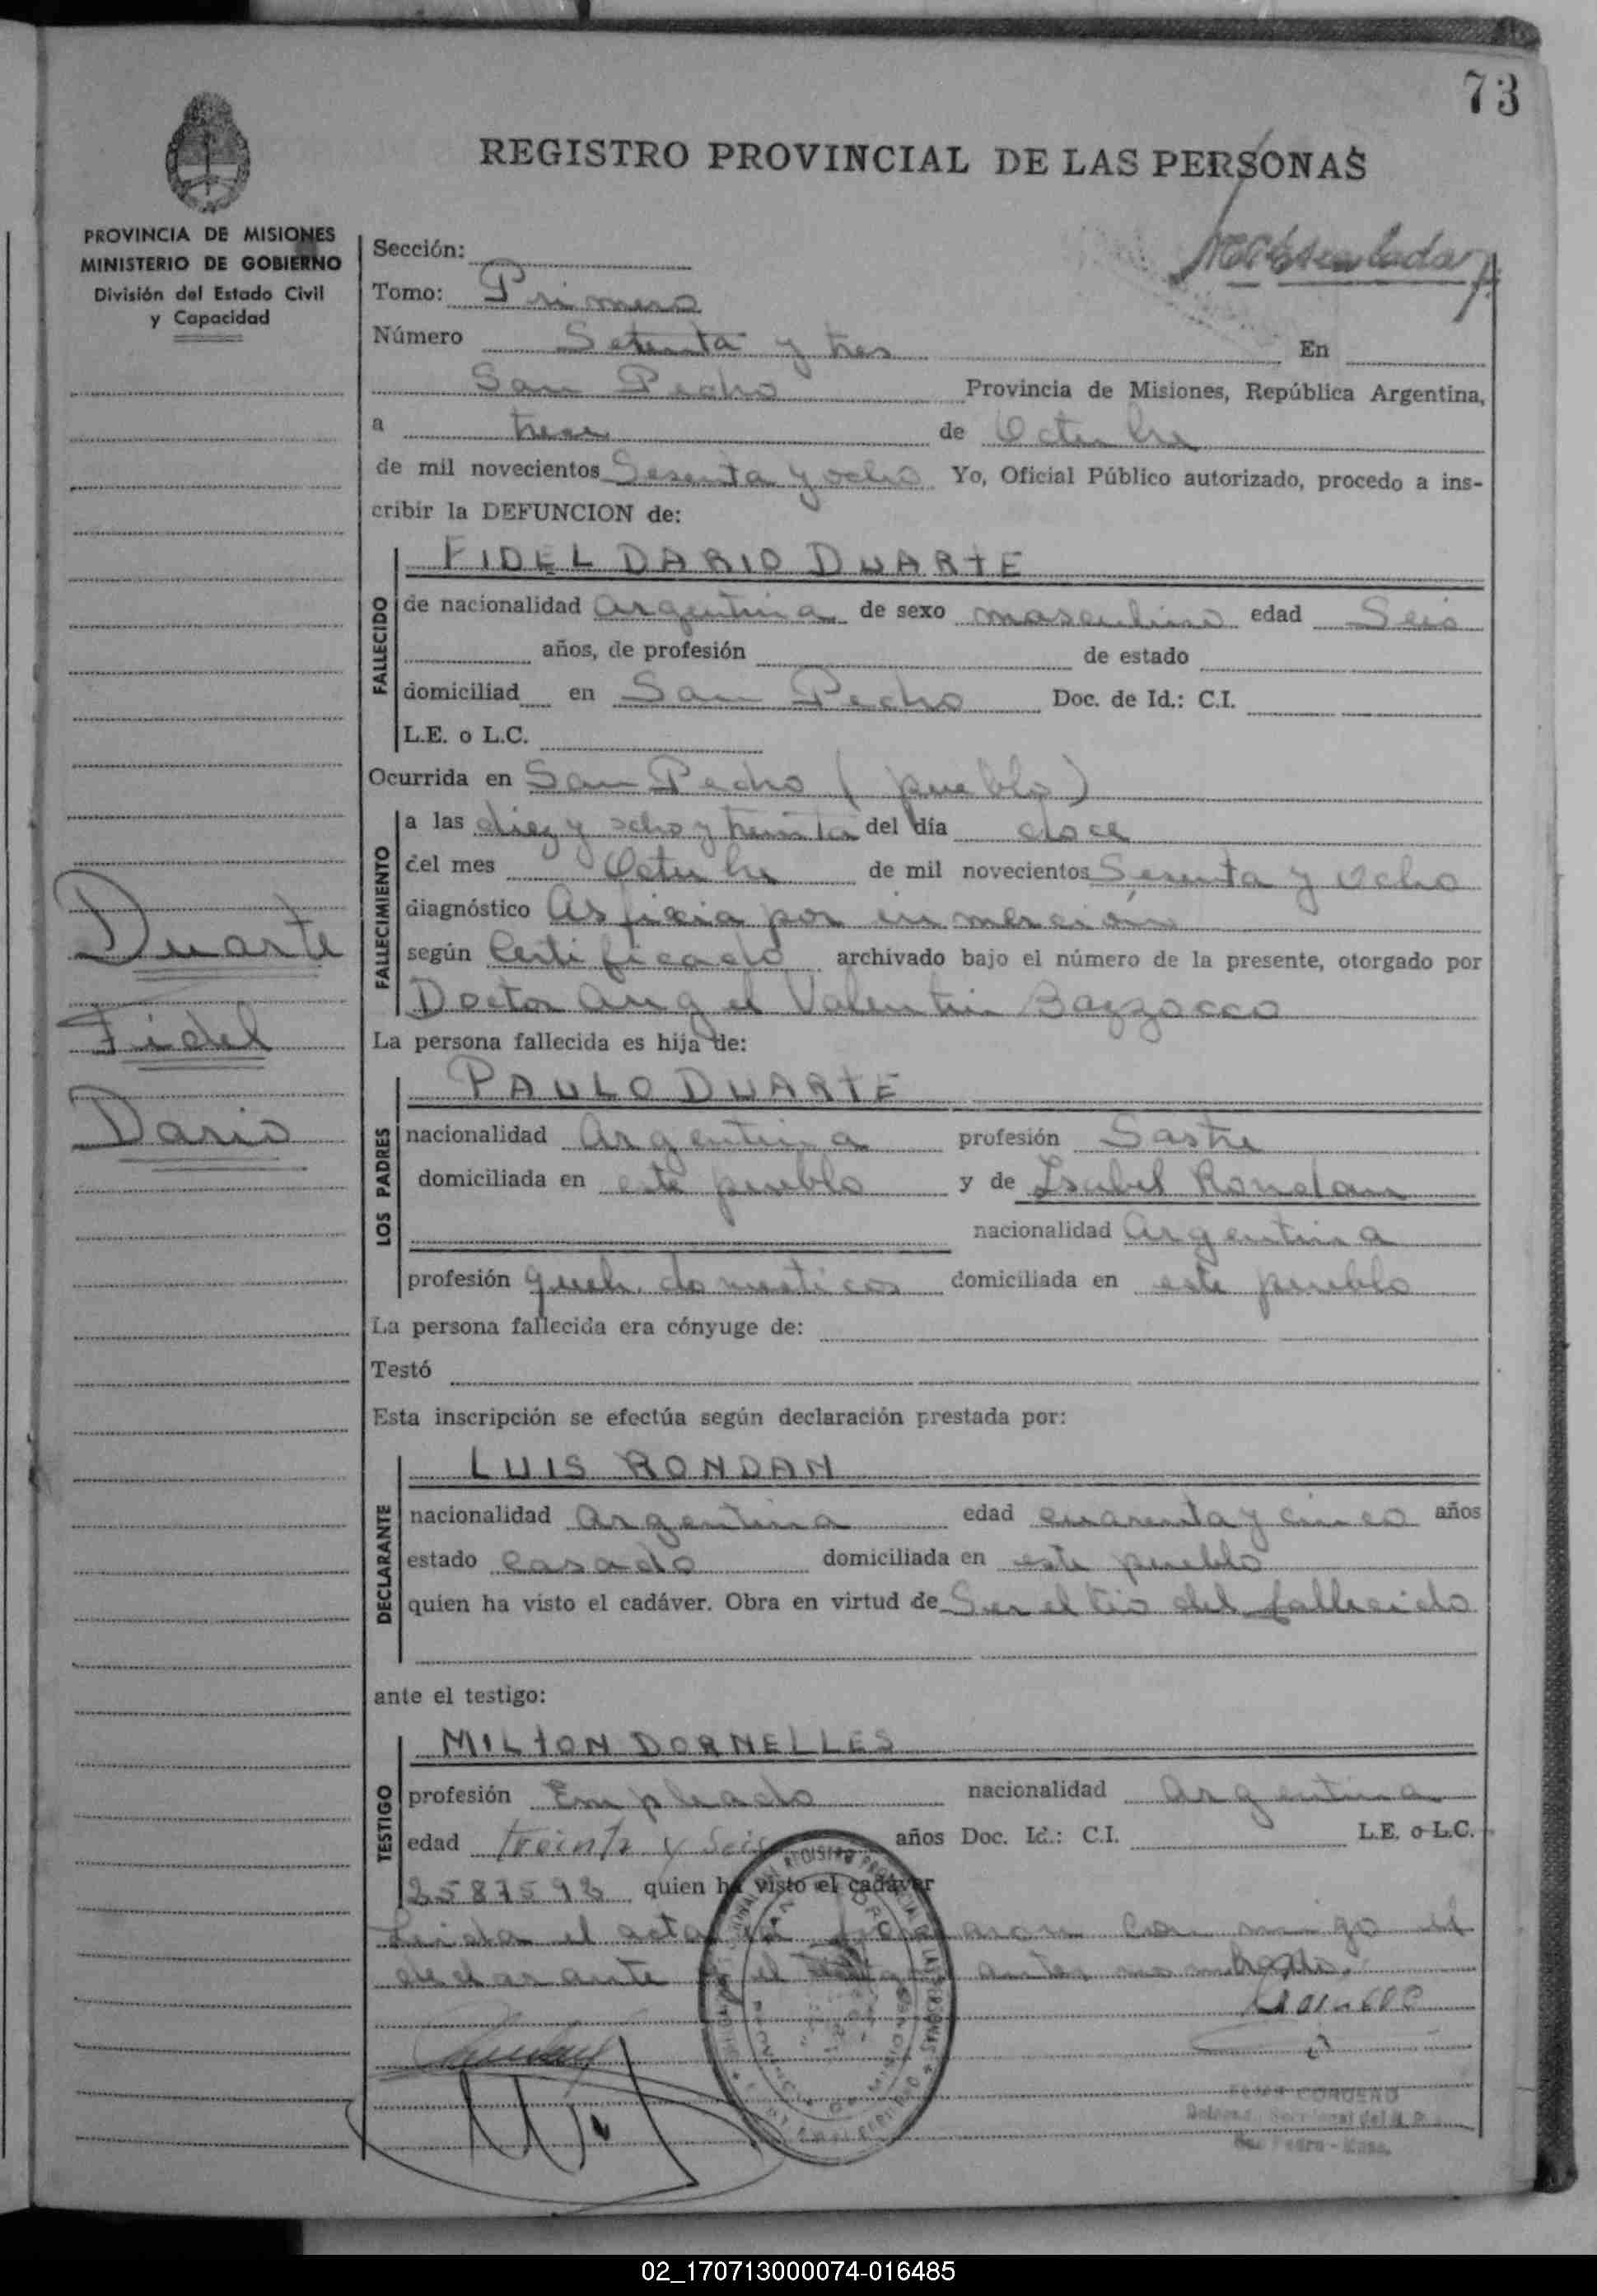 73
REGISTRO PROVINCIAL DE LAS PERSONAS
PROVINCIA DE MISIONES
MINISTERIO DE GOBIERNO
División del Estado Civil
y Capacidad
Sección:
Tomo: Primero
Número Setenta y tres En
San Pedro Provincia de Misiones, República Argentina,
a trece de Octubre
de mil novecientos Sesenta y ocho Yo, Oficial Público autorizado, procedo a ins-
cribir la DEFUNCION de:
FIDEL DARIO DUARTE
FALLECIDO
de nacionalidad argentina de sexo masculino edad Seis
años, de profesión de estado
domiciliad en San Pedro Doc. de Id.: C.I.
L.E. o L.C.
Ocurrida en San Pedro (pueblo)
FALLECIMIENTO
a las diez y ocho y treinta del día doce
del mes Octubre de mil novecientos Sesenta y ocho
diagnóstico Asfixia por inmerción
según Certificado archivado bajo el número de la presente, otorgado por
Doctor Angel Valentin Bazzocco
Duarte
Fidel
Dario
La persona fallecida es hija de:
PAULO DUARTE
LOS PADRES
nacionalidad Argentina profesión Sastre
domiciliada en este pueblo y de Isabel Rondan
nacionalidad Argentina
profesión queh. domesticos domiciliada en este pueblo
La persona fallecida era cónyuge de:
Testó
Esta inscripción se efectúa según declaración prestada por:
LUIS RONDAN
DECLARANTE
nacionalidad argentina edad cuarenta y cinco años
estado casado domiciliada en este pueblo
quien ha visto el cadáver. Obra en virtud de Ser el tio del fallecido
ante el testigo:
MILTON DORNELLES
TESTIGO
profesión Empleado nacionalidad Argentina
edad treinta y Seis años Doc. Id.: C.I. L.E. o L.C.
quien ha visto el cadáver
Leida el acta la conmigo el
declarante y el antes nombrado.
CORDERO
02_170713000074-016485